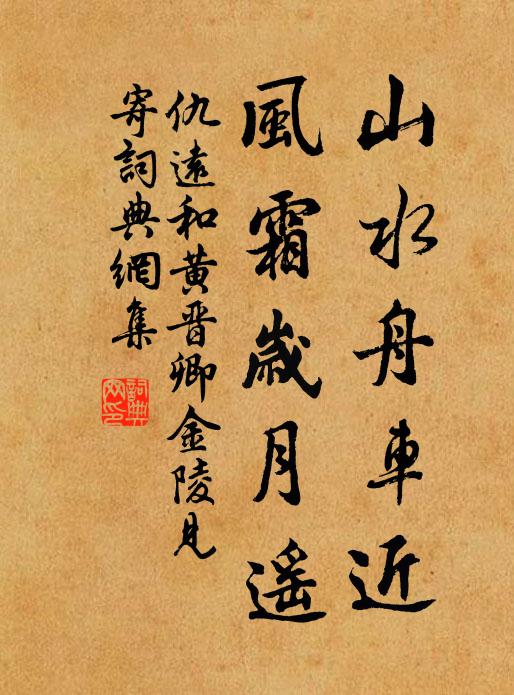 山水舟車近
風霜歲月遥
仇遠和黃晋卿金陵見
寄詞典網集
詞典网印